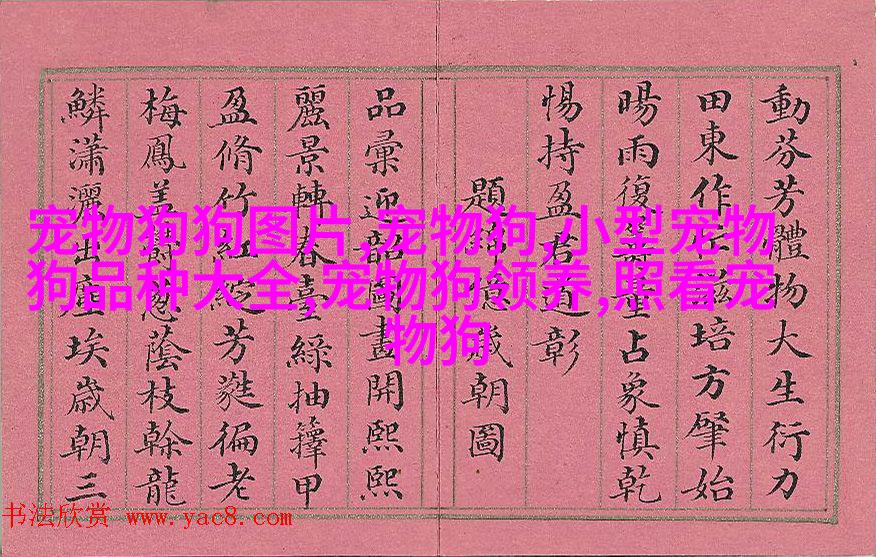 動芬芳體物大生衍力
田東作滋培方肇始
暘雨復聖占象慎乾
惕持盈君道彰
題億歲朝圖
品彙迎韶圖畫開熙熙
麗景轉春臺綠抽籜甲
盈脩竹紅綻芳蕤徧老
梅鳳葱蔭枝幹龍
鱗瀟灑出塵埃歲朝三
宠物狗狗图片,宠物狗,小型宠物
狗品种大全,宠物狗领养,照看宠
物狗
书法欣赏 www.yac8.com